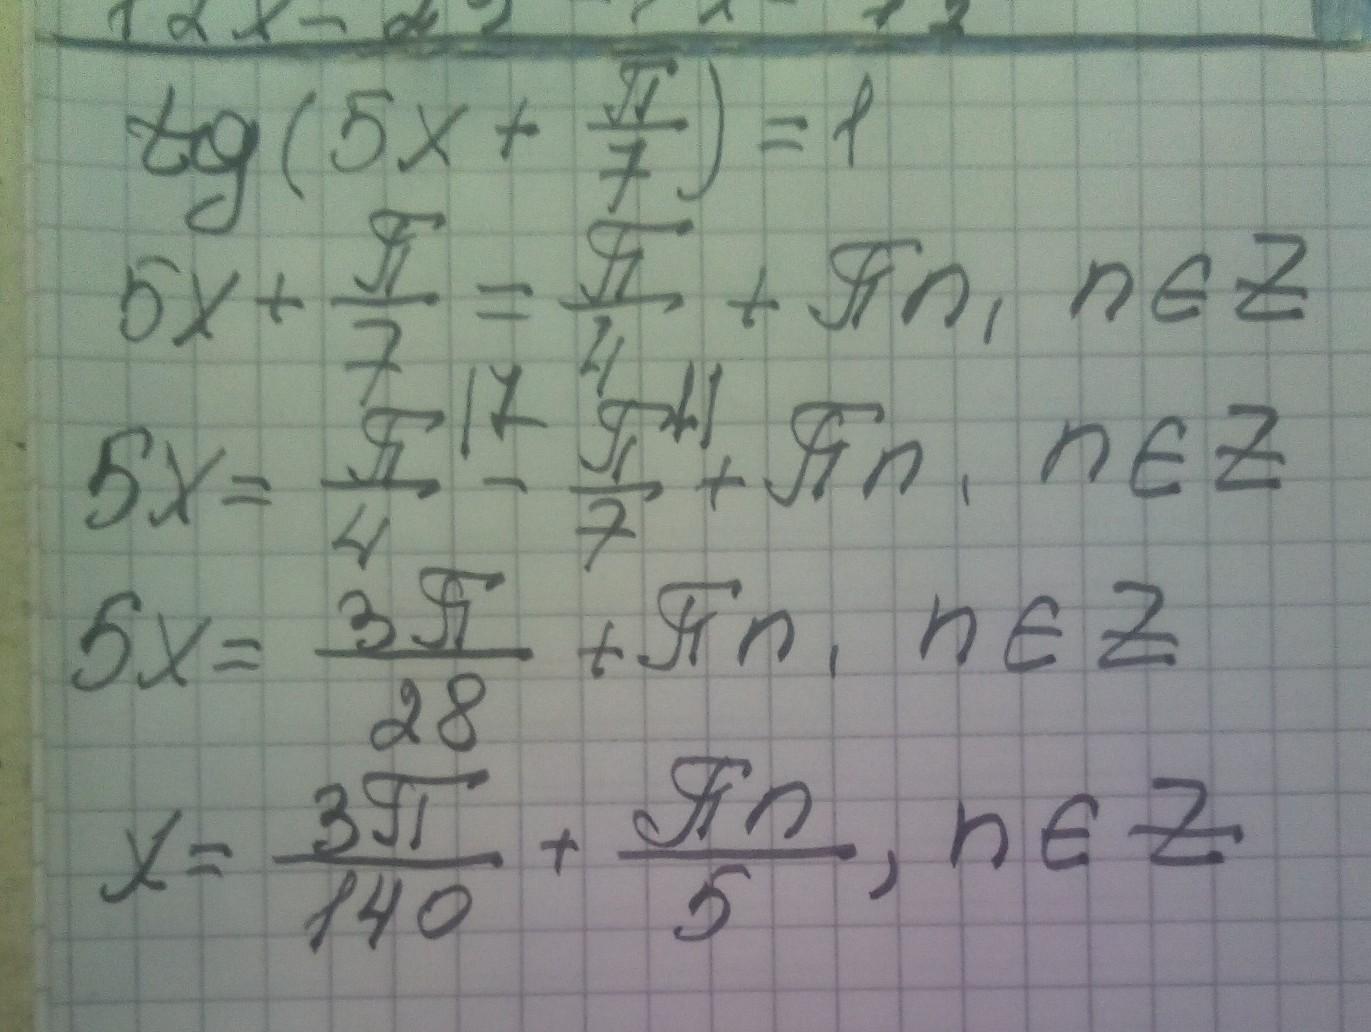 tg(5x + π/7) = 1
5x + π/7 = π/4 + πn, n∈Z
5x = π/4 |7 - π/7 |4 + πn, n∈Z
5x = 3π/28 + πn, n∈Z
x = 3π/140 + πn/5, n∈Z